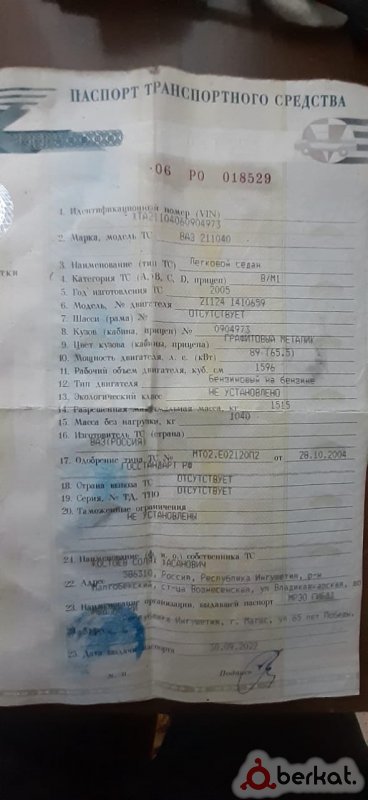 ПАСПОРТ ТРАНСПОРТНОГО СРЕДСТВА
06 РО 018529
1. Идентификационный номер (VIN)
XTA21104060904973
2. Марка, модель ТС ВАЗ 211040
3. Наименование (тип ТС) Легковой седан
4. Категория ТС (A, B, C, D, прицеп) B/M1
5. Год изготовления ТС 2005
6. Модель, № двигателя 21124 1410659
7. Шасси (рама) № ОТСУТСТВУЕТ
8. Кузов (кабина, прицеп) № 0904973
9. Цвет кузова (кабины, прицепа) ГРАФИТОВЫЙ МЕТАЛИК
10. Мощность двигателя, л. с. (кВт) 89 (65.5)
11. Рабочий объем двигателя, куб. см 1596
12. Тип двигателя бензиновый на бензине
13. Экологический класс НЕ УСТАНОВЛЕНО
14. Разрешенная максимальная масса, кг 1515
15. Масса без нагрузки, кг 1040
16. Изготовитель ТС (страна)
ВАЗ(РОССИЯ)
17. Одобрение типа ТС № МТ02.Е02120П2 от 28.10.2004
ГОССТАНДАРТ РФ
18. Страна вывоза ТС ОТСУТСТВУЕТ
19. Серия, № ТД, ТПО ОТСУТСТВУЕТ
20. Таможенные ограничения
НЕ УСТАНОВЛЕНЫ
21. Наименование (ф. и. о.) собственника ТС
КОСТОЕВ ХАСАНОВИЧ
386310, Россия, Республика Ингушетия, р-н
22. Адрес Малгобекский, ст-ца Вознесенская, ул
23. Наименование организации, выдавшей паспорт МРЭО ГИБДД
Ингушетия, г. Магас, ул 65 лет Победы,
25. Дата выдачи паспорта
м. п. Подпись
berkat.